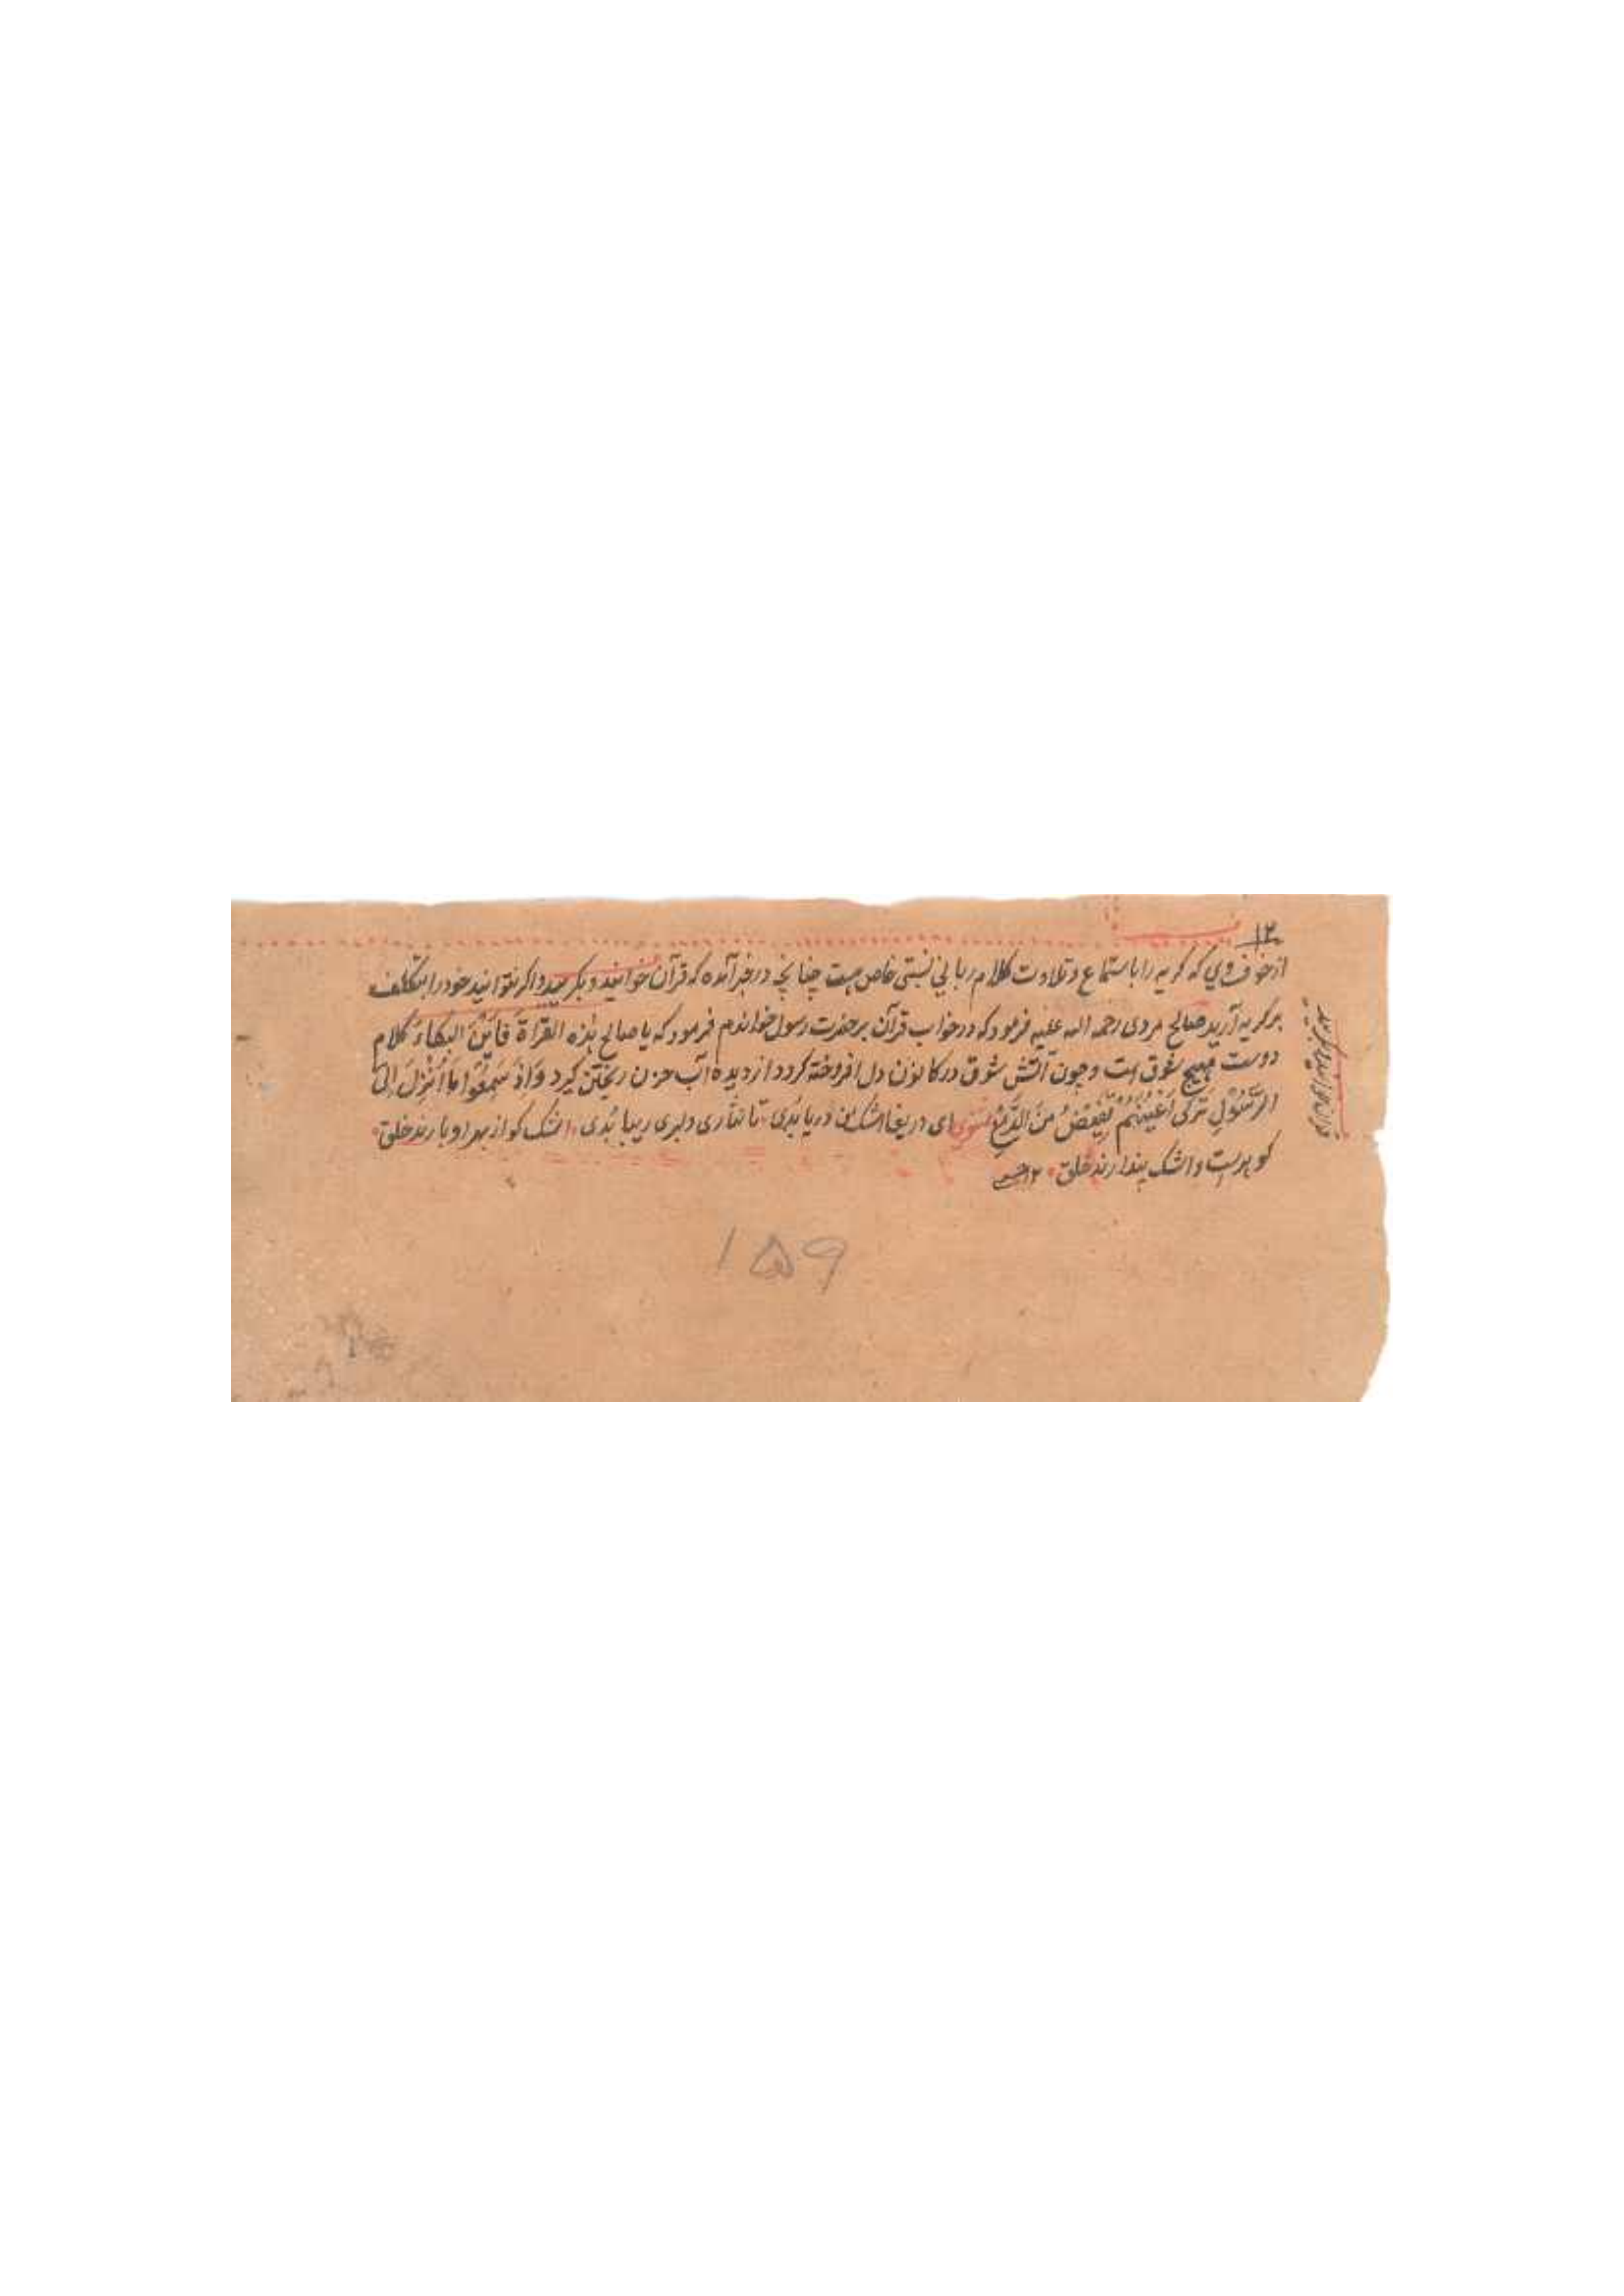 ١٢
از خوف وی که کریه را باستماع و تلاوت کلام ربانی نسبتی خاص هست چنانچه در خبر آمده که قرآن خوانید و بکریید و اکر نتوانید خود را بتکلف
بر کریه آرید صالح مروی رحمة الله علیه فرمود که در خواب قرآن بر حضرت رسول خواندم فرمود که یا صالح هذه القراءة فَاَیْنَ البُکاءُ کلام
دوست مهیج شوق است و چون آتش شوق در کانون دل افروخته کردد از دیده آب حزن ریختن کیرد وَاِذَ سَمِعُوا مَا اُنْزِلَ اِلَی
الرَّسُوْلِ تَرَی اَعْیُنَهُمْ تَفِیْضُ مِنَ الدَّمْعِ مثنوی ای دریغا اشک من دریا بُدی تا نثاری دلبری زیبا بُدی اشک کو از بهر او بارند خلق
کوهرست و اشک پندارند خلق ١٢
قرآن خوانید و بکریید
١۵٩